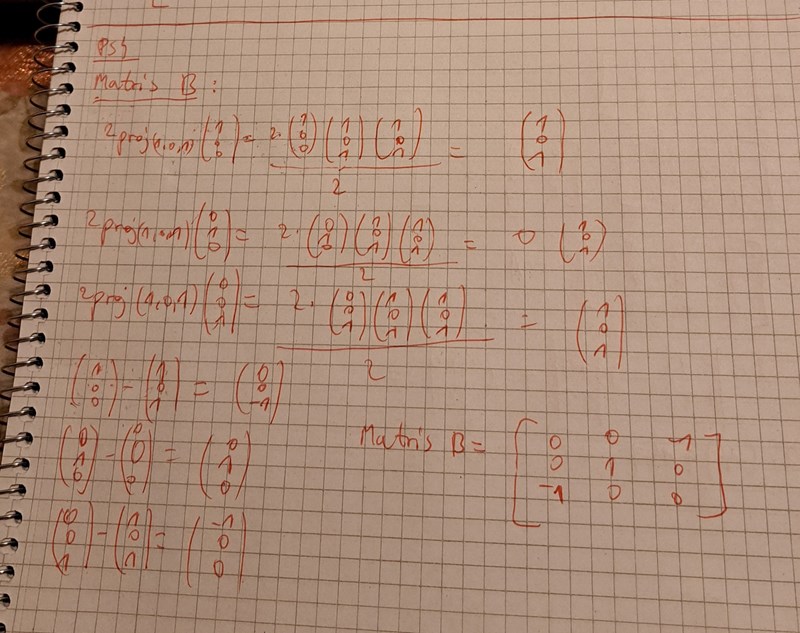 Matris B:
2proj(1,0,1) (1 0 0) = 2·(1 0 0)(1 0 1)(1 0 1) / 2 = (1 0 1)
2proj(1,0,1) (0 1 0) = 2·(0 1 0)(1 0 1)(1 0 1) / 2 = 0 (1 0 1)
2proj(1,0,1) (0 0 1) = 2·(0 0 1)(1 0 1)(1 0 1) / 2 = (1 0 1)
(1 0 0) - (1 0 1) = (0 0 -1)
(0 1 0) - (0 0 0) = (0 1 0)
(0 0 1) - (1 0 1) = (-1 0 0)
Matris B = [0 0 -1
0 1 0
-1 0 0]